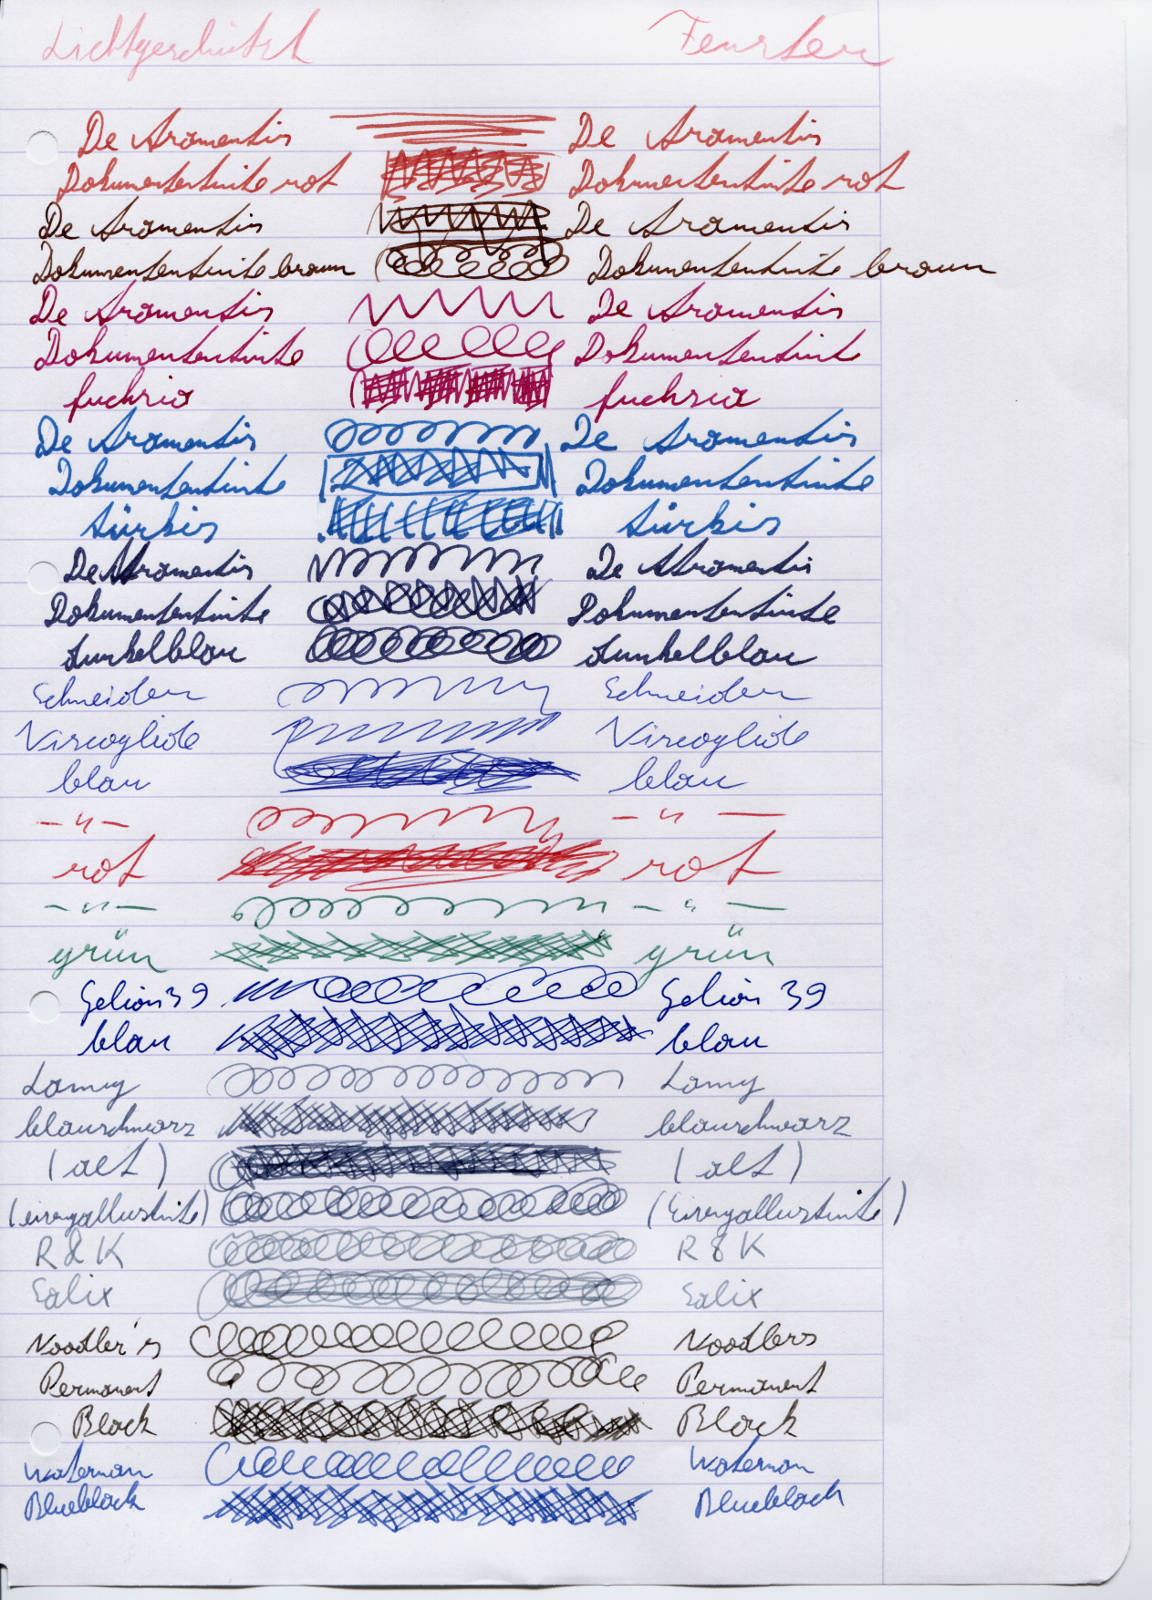 Lichtgeschützt Fenster
De Atramentis De Atramentis
Dokumententinte rot Dokumententinte rot
De Atramentis De Atramentis
Dokumententinte braun Dokumententinte braun
De Atramentis De Atramentis
Dokumententinte Dokumententinte
fuchsia fuchsia
De Atramentis De Atramentis
Dokumententinte Dokumententinte
türkis türkis
De Atramentis De Atramentis
Dokumententinte Dokumententinte
dunkelblau dunkelblau
Schneider Schneider
Viscoglide Viscoglide
blau blau
-"- -"-
rot rot
-"- -"-
grün grün
Gelion 39 Gelion 39
blau blau
Lamy Lamy
blauschwarz blauschwarz
(alt) (alt)
(eisengallustinte) (Eisengallustinte)
R & K R & K
Salix Salix
Noodler's Noodlers
Permanent Permanent
Black Black
Waterman Waterman
Blueblack Blueblack